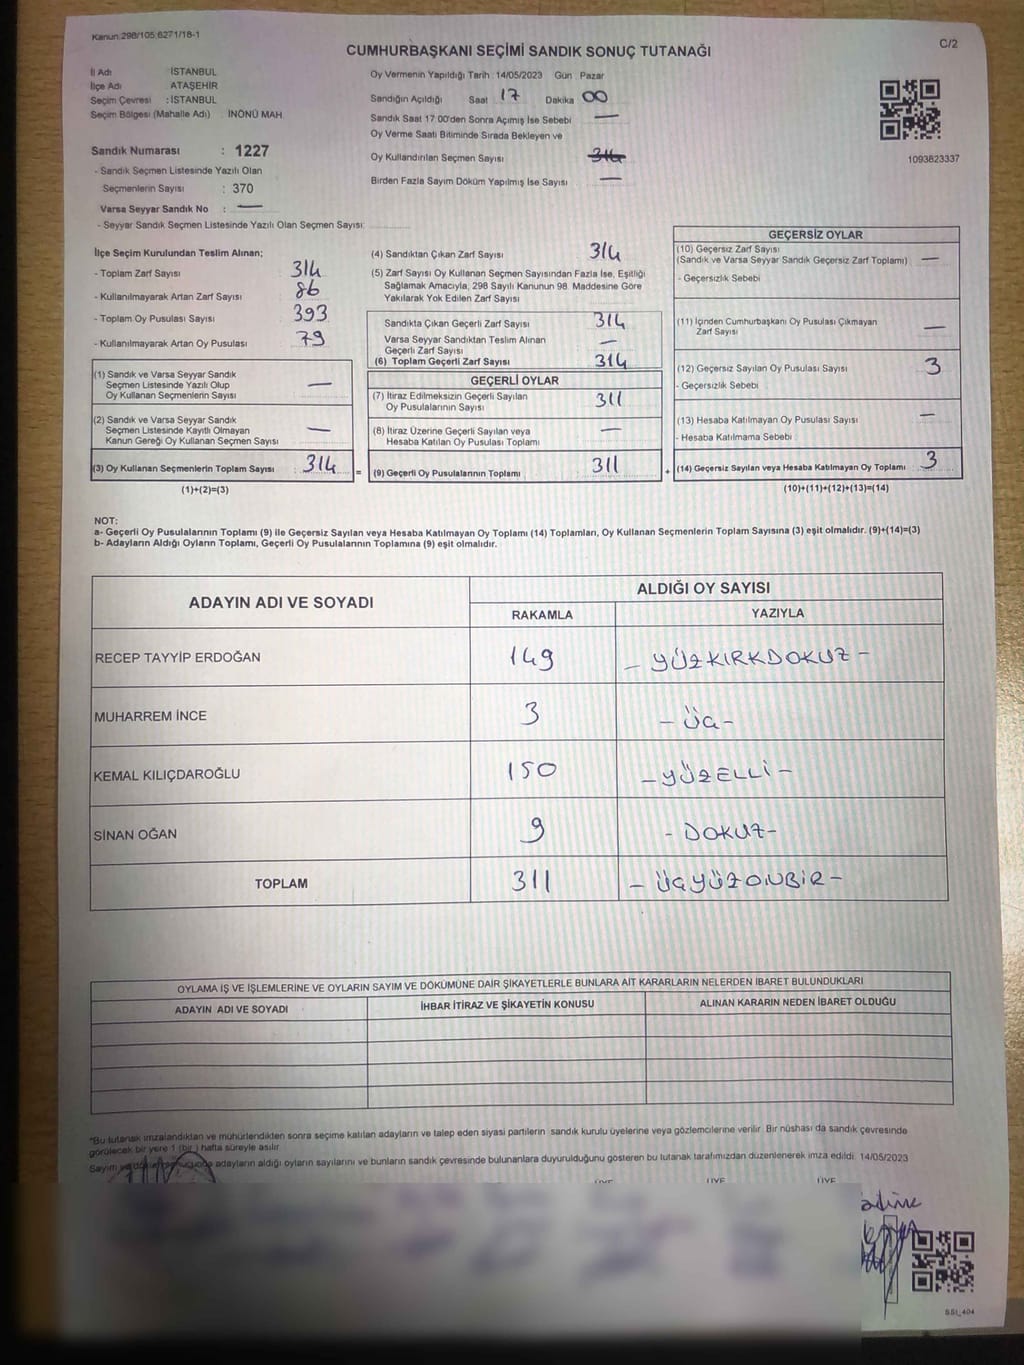 Kanun:298/105,6271/18-1
C/2
CUMHURBAŞKANI SEÇİMİ SANDIK SONUÇ TUTANAĞI
İl Adı : İSTANBUL
İlçe Adı : ATAŞEHİR
Seçim Çevresi : İSTANBUL
Seçim Bölgesi (Mahalle Adı) : İNÖNÜ MAH.
Sandık Numarası : 1227
- Sandık Seçmen Listesinde Yazılı Olan
Seçmenlerin Sayısı : 370
Varsa Seyyar Sandık No : —
- Seyyar Sandık Seçmen Listesinde Yazılı Olan Seçmen Sayısı:
Oy Vermenin Yapıldığı Tarih :14/05/2023 Gün Pazar
Sandığın Açıldığı Saat 17 Dakika 00
Sandık Saat 17:00'den Sonra Açımış İse Sebebi —
Oy Verme Saati Bitiminde Sırada Bekleyen ve
Oy Kullandırılan Seçmen Sayısı 314
Birden Fazla Sayım Döküm Yapılmış İse Sayısı —
1093823337
İlçe Seçim Kurulundan Teslim Alınan;
- Toplam Zarf Sayısı 314
- Kullanılmayarak Artan Zarf Sayısı 86
- Toplam Oy Pusulası Sayısı 393
- Kullanılmayarak Artan Oy Pusulası 79
(1) Sandık ve Varsa Seyyar Sandık
Seçmen Listesinde Yazılı Olup
Oy Kullanan Seçmenlerin Sayısı —
(2) Sandık ve Varsa Seyyar Sandık
Seçmen Listesinde Kayıtlı Olmayan
Kanun Gereği Oy Kullanan Seçmen Sayısı —
(3) Oy Kullanan Seçmenlerin Toplam Sayısı 314 =
(1)+(2)=(3)
(4) Sandıktan Çıkan Zarf Sayısı 314
(5) Zarf Sayısı Oy Kullanan Seçmen Sayısından Fazla İse, Eşitliği
Sağlamak Amacıyla, 298 Sayılı Kanunun 98. Maddesine Göre
Yakılarak Yok Edilen Zarf Sayısı
Sandıkta Çıkan Geçerli Zarf Sayısı 314
Varsa Seyyar Sandıktan Teslim Alınan
Geçerli Zarf Sayısı —
(6) Toplam Geçerli Zarf Sayısı 314
GEÇERLİ OYLAR
(7) İtiraz Edilmeksizin Geçerli Sayılan
Oy Pusulalarının Sayısı 311
(8) İtiraz Üzerine Geçerli Sayılan veya
Hesaba Katılan Oy Pusulası Toplamı —
(9) Geçerli Oy Pusulalarının Toplamı 311 +
GEÇERSİZ OYLAR
(10) Geçersiz Zarf Sayısı
(Sandık ve Varsa Seyyar Sandık Geçersiz Zarf Toplamı) —
- Geçersizlik Sebebi
(11) İçinden Cumhurbaşkanı Oy Pusulası Çıkmayan
Zarf Sayısı —
(12) Geçersiz Sayılan Oy Pusulası Sayısı 3
- Geçersizlik Sebebi
(13) Hesaba Katılmayan Oy Pusulası Sayısı —
- Hesaba Katılmama Sebebi
(14) Geçersiz Sayılan veya Hesaba Katılmayan Oy Toplamı 3
(10)+(11)+(12)+(13)=(14)
NOT:
a- Geçerli Oy Pusulalarının Toplamı (9) ile Geçersiz Sayılan veya Hesaba Katılmayan Oy Toplamı (14) Toplamları, Oy Kullanan Seçmenlerin Toplam Sayısına (3) eşit olmalıdır. (9)+(14)=(3)
b- Adayların Aldığı Oyların Toplamı, Geçerli Oy Pusulalarının Toplamına (9) eşit olmalıdır.
ADAYIN ADI VE SOYADI ALDIĞI OY SAYISI
RAKAMLA YAZIYLA
RECEP TAYYİP ERDOĞAN 149 - YÜZKIRKDOKUZ -
MUHARREM İNCE 3 - ÜÇ -
KEMAL KILIÇDAROĞLU 150 - YÜZELLİ -
SİNAN OĞAN 9 - DOKUZ -
TOPLAM 311 - ÜÇYÜZONBİR -
OYLAMA İŞ VE İŞLEMLERİNE VE OYLARIN SAYIM VE DÖKÜMÜNE DAİR ŞİKAYETLERLE BUNLARA AİT KARARLARIN NELERDEN İBARET BULUNDUKLARI
ADAYIN ADI VE SOYADI İHBAR İTİRAZ VE ŞİKAYETİN KONUSU ALINAN KARARIN NEDEN İBARET OLDUĞU
*Bu tutanak imzalandıktan ve mühürlendikten sonra seçime katılan adayların ve talep eden siyasi partilerin sandık kurulu üyelerine veya gözlemcilerine verilir. Bir nüshası da sandık çevresinde
görülecek bir yere 1 (bir) hafta süreyle asılır.
Sayım ve döküm adayların aldığı oyların sayılarını ve bunların sandık çevresinde bulunanlara duyurulduğunu gösteren bu tutanak tarafımızdan düzenlenerek imza edildi. 14/05/2023
ÜYE ÜYE ÜYE
SSI_404